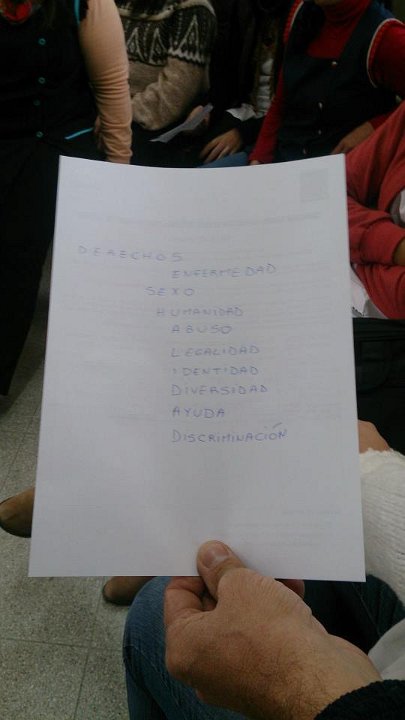 DERECHOS
ENFERMEDAD
SEXO
HUMANIDAD
ABUSO
LEGALIDAD
IDENTIDAD
DIVERSIDAD
AYUDA
DISCRIMINACIÓN